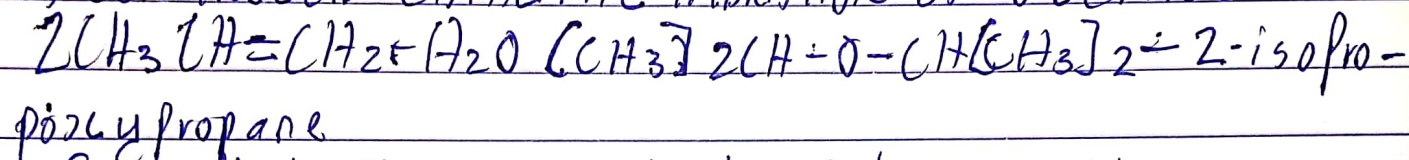 2CH3CH=CH2+H2O [CH3]2CH-O-CH[CH3]2-2-isopro-
poxypropane